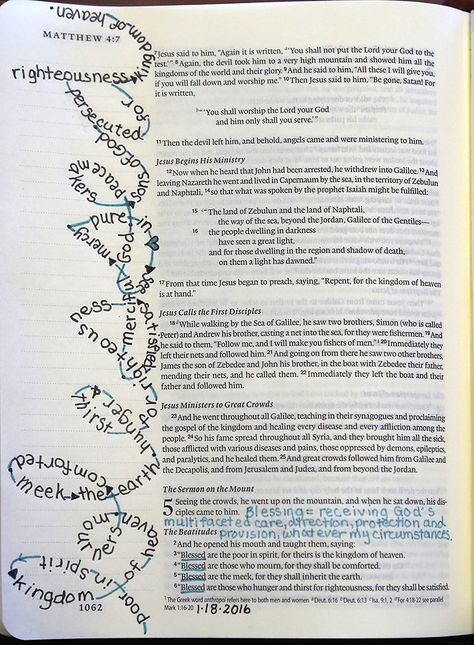 MATTHEW 4:7
7Jesus said to him, "Again it is written, 'You shall not put the Lord your God to the
test.'" 8Again, the devil took him to a very high mountain and showed him all the
kingdoms of the world and their glory. 9And he said to him, "All these I will give you,
if you will fall down and worship me." 10Then Jesus said to him, "Be gone, Satan! For
it is written,
"'You shall worship the Lord your God
and him only shall you serve.'"
11Then the devil left him, and behold, angels came and were ministering to him.
Jesus Begins His Ministry
12Now when he heard that John had been arrested, he withdrew into Galilee. 13And
leaving Nazareth he went and lived in Capernaum by the sea, in the territory of Zebulun
and Naphtali, 14so that what was spoken by the prophet Isaiah might be fulfilled:
15 "The land of Zebulun and the land of Naphtali,
the way of the sea, beyond the Jordan, Galilee of the Gentiles—
16 the people dwelling in darkness
have seen a great light,
and for those dwelling in the region and shadow of death,
on them a light has dawned."
17From that time Jesus began to preach, saying, "Repent, for the kingdom of heaven
is at hand."
Jesus Calls the First Disciples
18While walking by the Sea of Galilee, he saw two brothers, Simon (who is called
Peter) and Andrew his brother, casting a net into the sea, for they were fishermen. 19And
he said to them, "Follow me, and I will make you fishers of men." 20Immediately they
left their nets and followed him. 21And going on from there he saw two other brothers,
James the son of Zebedee and John his brother, in the boat with Zebedee their father,
mending their nets, and he called them. 22Immediately they left the boat and their
father and followed him.
Jesus Ministers to Great Crowds
23And he went throughout all Galilee, teaching in their synagogues and proclaiming
the gospel of the kingdom and healing every disease and every affliction among the
people. 24So his fame spread throughout all Syria, and they brought him all the sick,
those afflicted with various diseases and pains, those oppressed by demons, epileptics,
and paralytics, and he healed them. 25And great crowds followed him from Galilee and
the Decapolis, and from Jerusalem and Judea, and from beyond the Jordan.
The Sermon on the Mount
5 Seeing the crowds, he went up on the mountain, and when he sat down, his dis-
ciples came to him. Blessing = receiving God's
multifaceted care, direction, protection and
provision, whatever my circumstances.
The Beatitudes
2And he opened his mouth and taught them, saying:
3"Blessed are the poor in spirit, for theirs is the kingdom of heaven.
4"Blessed are those who mourn, for they shall be comforted.
5"Blessed are the meek, for they shall inherit the earth.
6"Blessed are those who hunger and thirst for righteousness, for they shall be satisfied.
1 The Greek word anthropoi refers here to both men and women
Mark 1:16-20 1·18·2016
1062
poor in spirit
kingdom of heaven
mourners
comforted
meek the earth
hunger thirst for righteousness
satisfied
merciful
mercy
pure in
see God
peacemakers
sons of God
persecuted for
righteousness
kingdom of heaven.